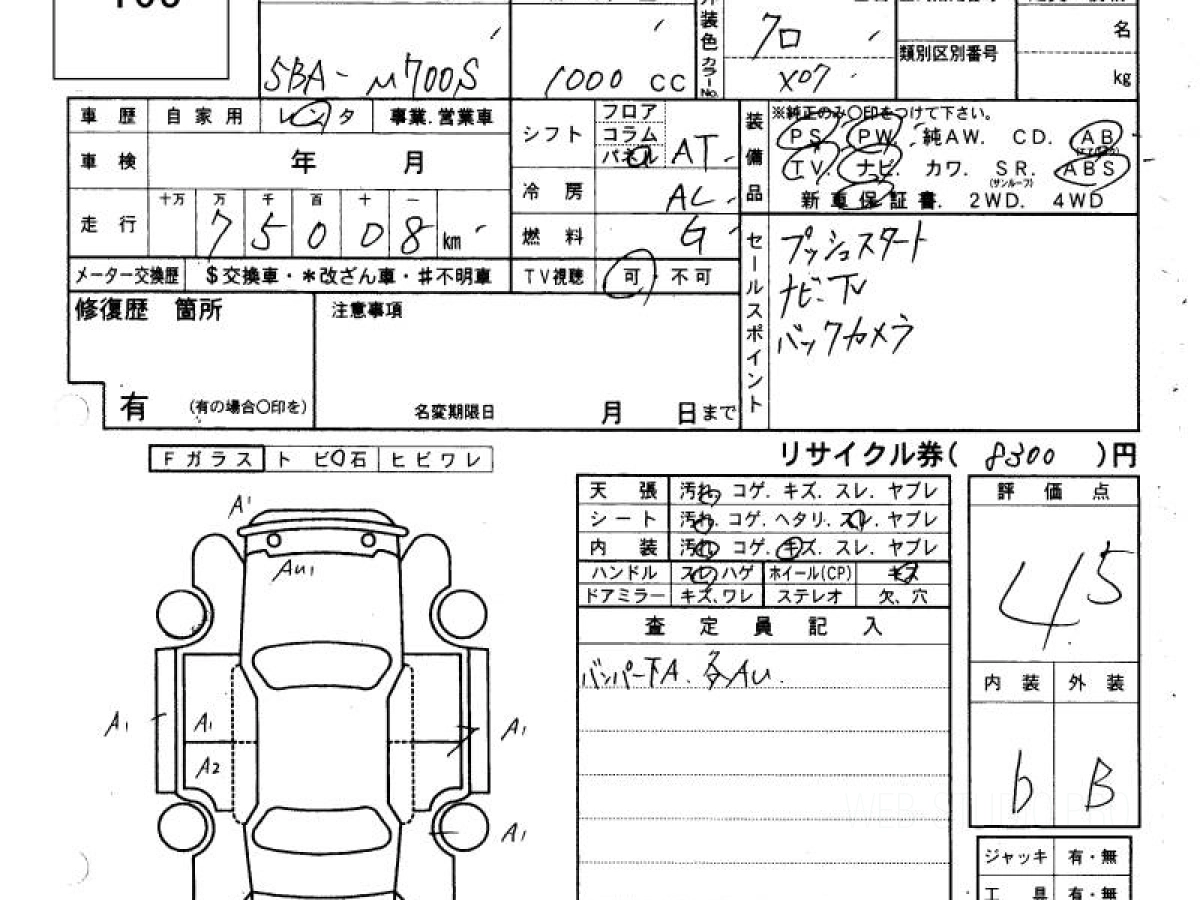 5BA- M700S 1000 CC 外装色 カラーNo. クロ X07 類別区別番号 名 kg
車歴 自家用 レンタ 事業.営業車 シフト フロア コラム パネル AT
装備品 ※純正のみ〇印をつけて下さい。
PS PW 純AW. CD. AB
TV. ナビ. カワ. SR. (サンルーフ) ABS
新車保証書. 2WD. 4WD
車検 年 月
冷房 AC
走行 十万 万 千 百 十 一
75008 km
燃料 G
メーター交換歴 $交換車・*改ざん車・#不明車 TV視聴 可・不可
セールスポイント
プッシュスタート
ナビ、TV
バックカメラ
修復歴 箇所 注意事項
有 (有の場合〇印を) 名変期限日 月 日まで
Fガラス トビ石 ヒビワレ
リサイクル券( 8300 )円
天張 汚れ. コゲ. キズ. スレ. ヤブレ
シート 汚れ. コゲ. ヘタリ. スレ. ヤブレ
内装 汚れ. コゲ. キズ. スレ. ヤブレ
ハンドル スレ. ハゲ ホイール(CP) キズ
ドアミラー キズ、ワレ ステレオ 欠、穴
評価点
4.5
内装 外装
b B
査定員記入
バンパー下A. 多AU.
A1
AU1
A1
A1
A2
A1
A1
ジャッキ 有・無
工具 有・無